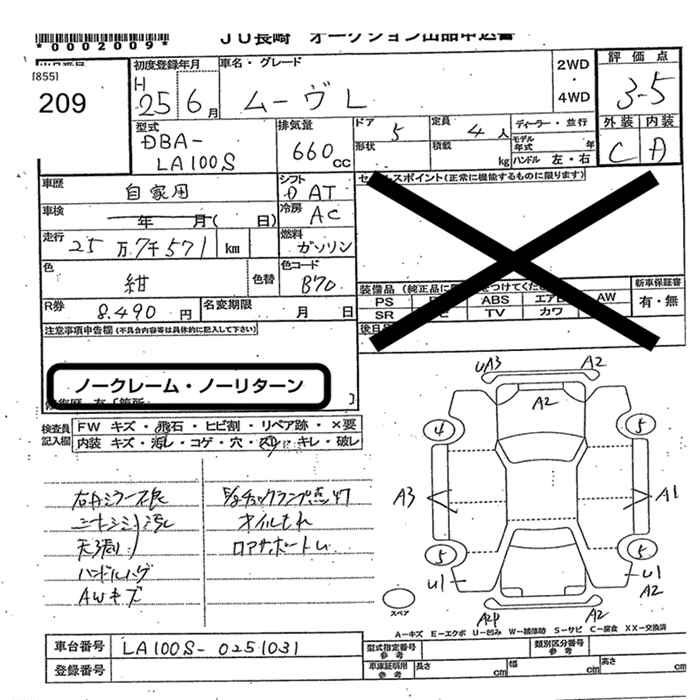 *0002009*
JU長崎 オークション出品申込書
[855]
209
初度登録年月
H 25 6月
車名・グレード
ムーヴL
2WD
・
4WD
評価点
3-5
外装 内装
C A
型式
DBA-
LA100S
排気量
660 CC
ドア 5
定員 4人
ディーラー・並行
形状
積載 kg
モデル年式 年
ハンドル 左・右
車歴 自家用
シフト DAT
セールスポイント(正常に機能するものに限ります)
車検 年 月( 日)
冷房 AC
走行 25万7千571 km
燃料 ガソリン
色 紺
色替
色コード B70
装備品
PS ABS エアB AW
SR TV カワ
新車保証書
有・無
R券 8,490円
名変期限 月 日
後日
注意事項申告欄(不具合内容等は具体的に記入して下さい)
ノークレーム・ノーリターン
検査員
記入欄
FW キズ・飛石・ヒビ割・リペア跡・×要
内装 キズ・汚レ・コゲ・穴・スレ・キレ・破レ
右ドアミラー不良
シート汚レ
天張り
ハンドルハゲ
AWキズ
E/gチェックランプ点灯
オイルもれ
ロアサポートU
UA3 A2
A2
4 5
A3 A1
5 5
U1 U1
A2
A2
スペア
A-キズ E-エクボ U-凹み W-補修跡 S-サビ C-腐食 XX-交換済
車台番号 LA100S-0251031
登録番号
型式指定番号
参考
類別区分番号
参考
車庫証明用
参考
長さ cm
幅 cm
高さ cm